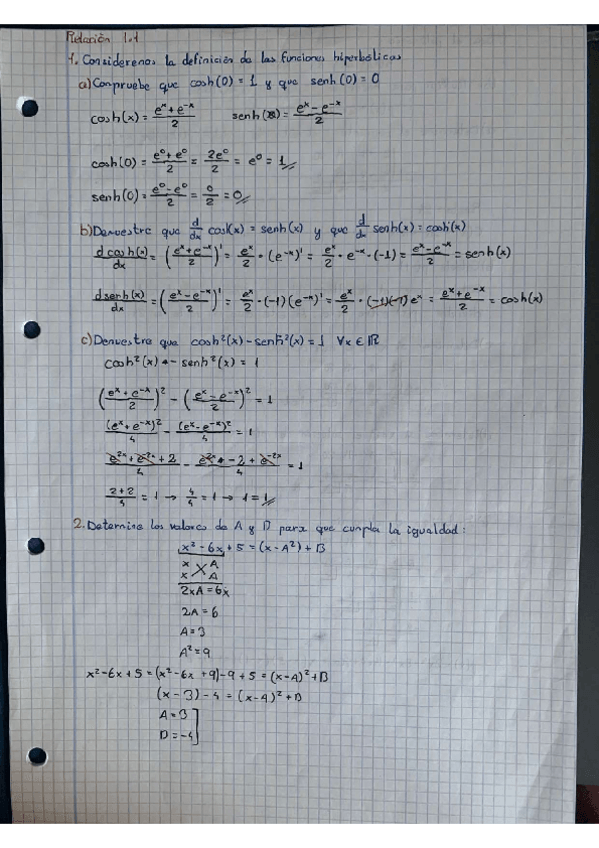 Relación 1.1
1. Consideremos la definición de las funciones hiperbólicas
a) Compruebe que cosh(0) = 1 y que senh(0) = 0
cosh(x) = (e^x + e^-x)/2    senh(x) = (e^x - e^-x)/2
cosh(0) = (e^0 + e^0)/2 = 2e^0/2 = e^0 = 1
senh(0) = (e^0 - e^0)/2 = 0/2 = 0
b) Demuestre que d/dx cosh(x) = senh(x) y que d/dx senh(x) = cosh(x)
d cosh(x)/dx = ((e^x + e^-x)/2)' = e^x/2 · (e^-x)' = e^x/2 · e^-x · (-1) = (e^x - e^-x)/2 = senh(x)
d senh(x)/dx = ((e^x - e^-x)/2)' = e^x/2 · (-1)(e^-x)' = e^x/2 · (-1)(-1) e^x = (e^x + e^-x)/2 = cosh(x)
c) Demuestra que cosh²(x) - senh²(x) = 1 ∀x ∈ ℝ
cosh²(x) - senh²(x) = 1
((e^x + e^-x)/2)² - ((e^x - e^-x)/2)² = 1
(e^x + e^-x)²/4 - (e^x - e^-x)²/4 = 1
(e^2x + e^-2x + 2)/4 - (e^2x - 2 + e^-2x)/4 = 1
(2+2)/4 = 1 → 4/4 = 1 → 1 = 1
2. Determine los valores de A y B para que cumpla la igualdad:
x² - 6x + 5 = (x - A²) + B
x A
x A
2xA = 6x
2A = 6
A = 3
A² = 9
x² - 6x + 5 = (x² - 6x + 9) - 9 + 5 = (x - A)² + B
(x - 3) - 4 = (x - A)² + B
A = 3
B = -4